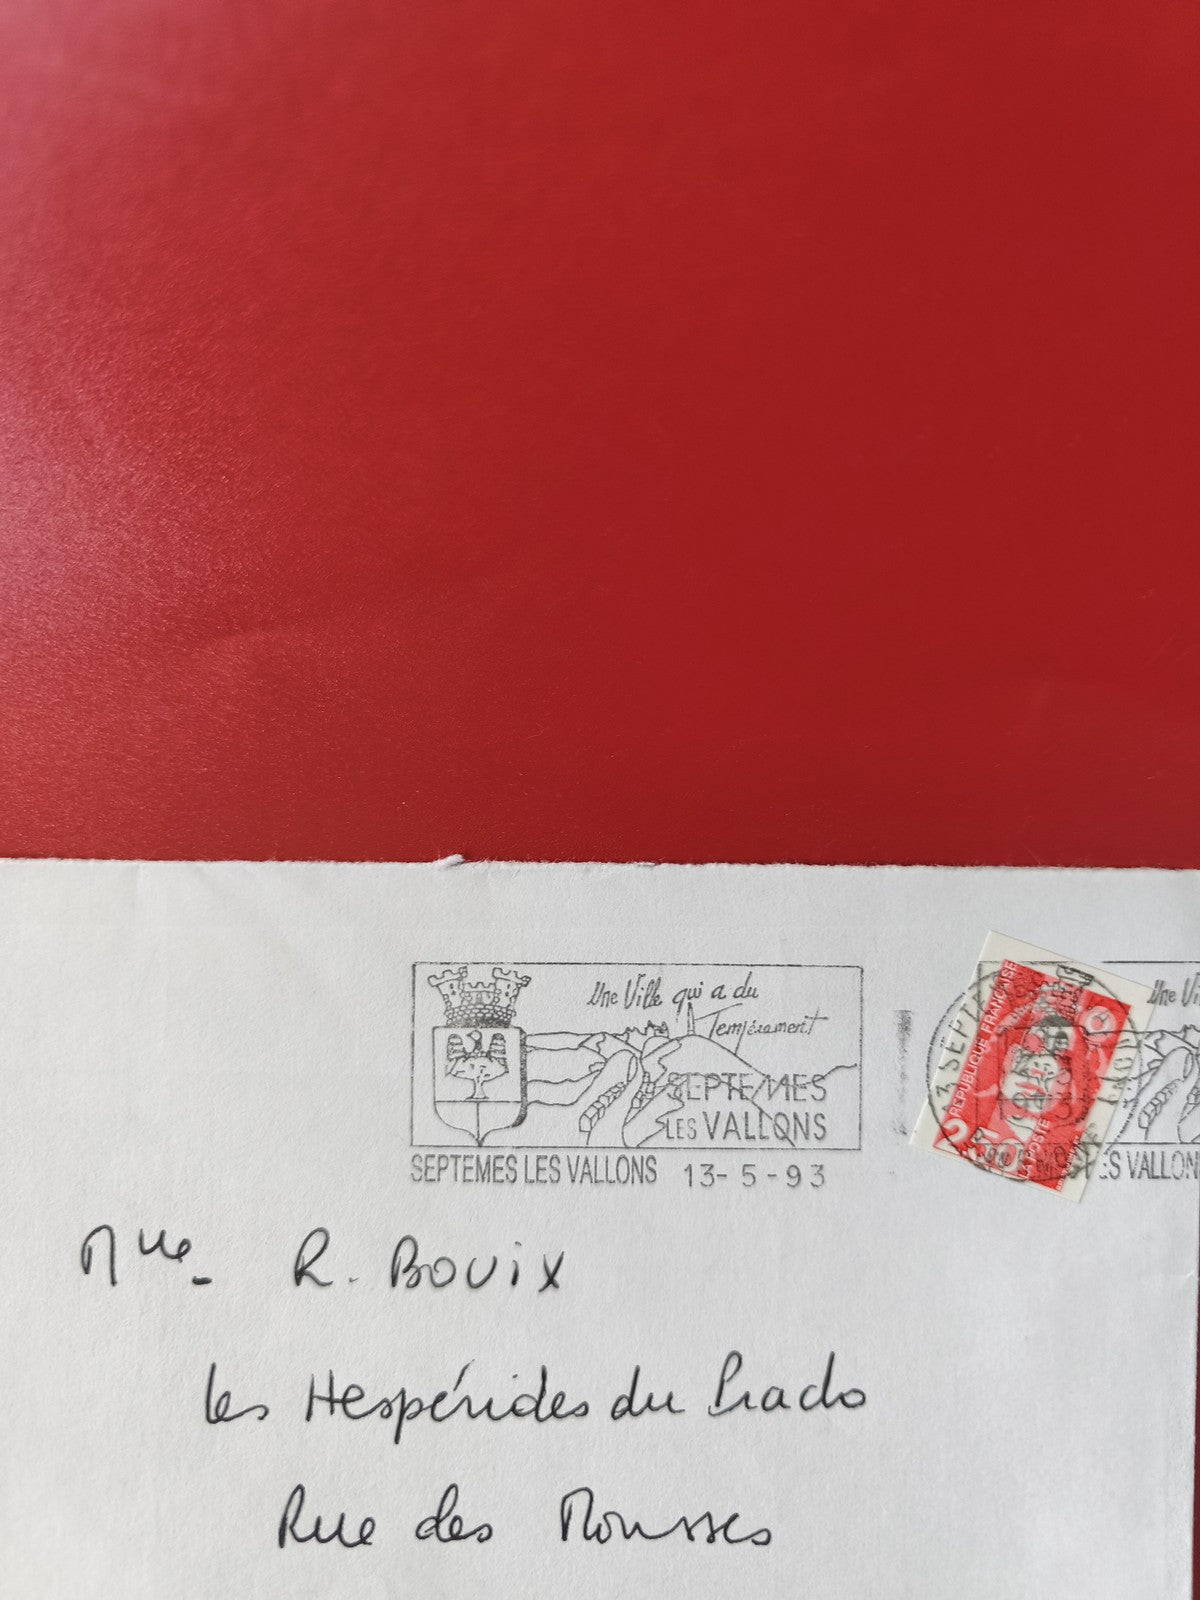 Une Ville qui a du
Tempérament
SEPTEMES
LES VALLONS
SEPTEMES LES VALLONS 13-5-93
13 SEPTEMES
RÉPUBLIQUE FRANÇAISE
2,50
LA POSTE
Une Vi
ES VALLON
Mlle. R. BOUIX
Les Hespérides du Prado
Rue des Mousses